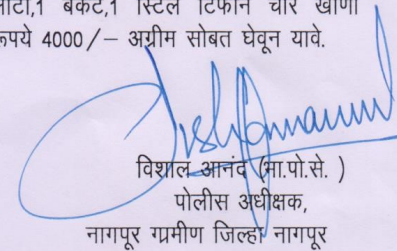 लोटा,1 बकेट,1 स्टिल टिफीन चार खाणी
रूपये 4000/– अग्रीम सोबत घेवून यावे.
विशाल आनंद (भा.पो.से. )
पोलीस अधीक्षक,
नागपूर ग्रामीण जिल्हा नागपूर